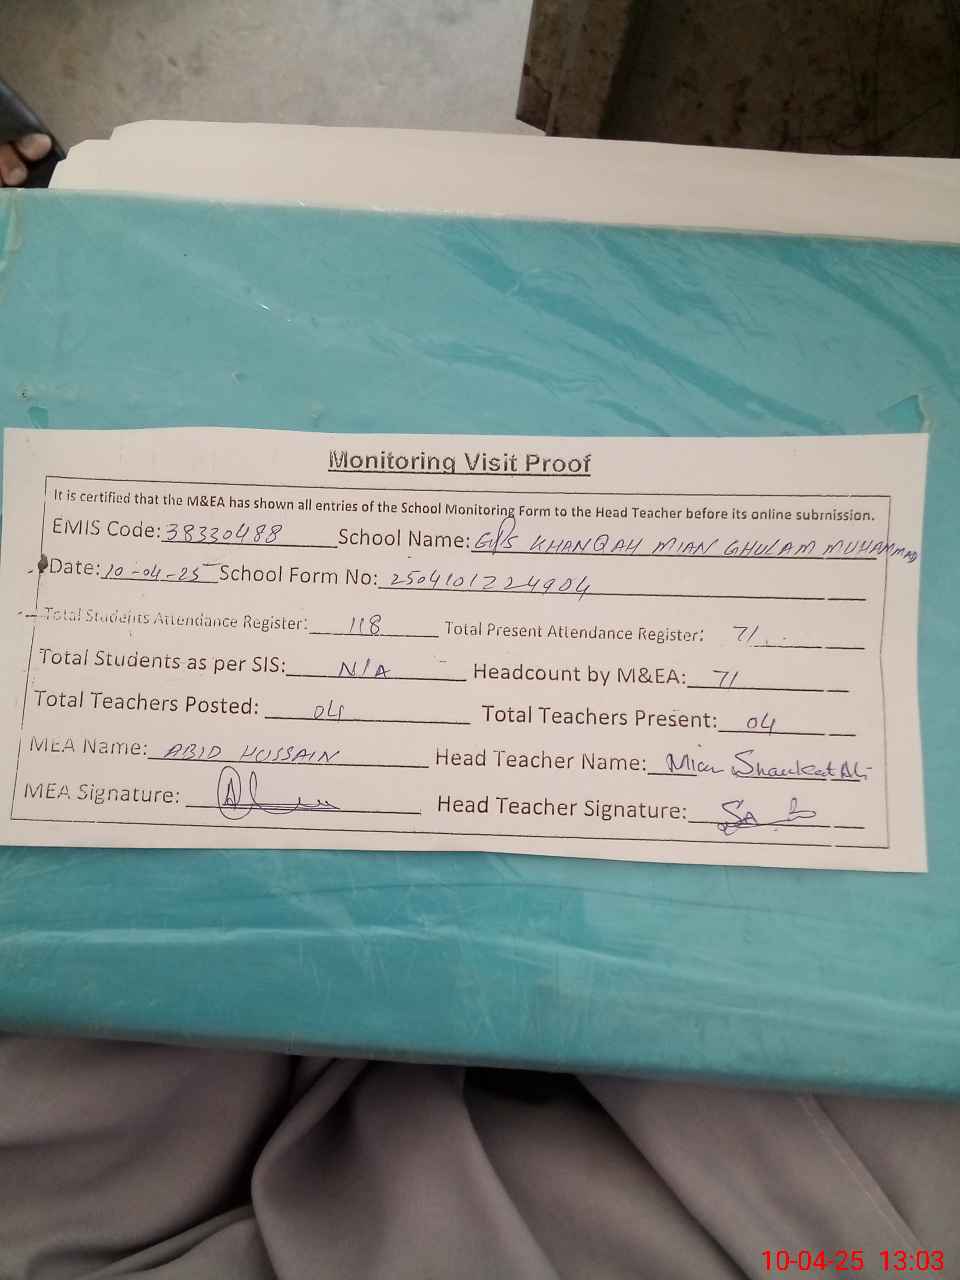 Monitoring Visit Proof
It is certified that the M&EA has shown all entries of the School Monitoring Form to the Head Teacher before its online submission.
EMIS Code: 38330488 School Name: GPS KHANQAH MIAN GHULAM MUHAMMAD
Date: 10-04-25 School Form No: 2504101224904
Total Students Attendance Register: 118 Total Present Attendance Register: 71
Total Students as per SIS: N/A Headcount by M&EA: 71
Total Teachers Posted: 04 Total Teachers Present: 04
MEA Name: ABID HUSSAIN Head Teacher Name: Mian Shaukat Ali
MEA Signature: Head Teacher Signature:
10-04-25 13:03